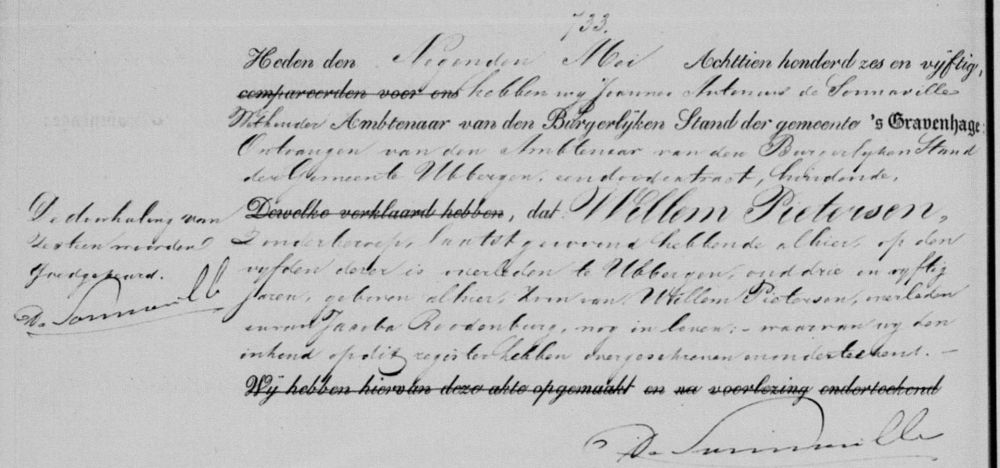 733.
Heden den Negenden Mei Achttien honderd zes en vijftig,
compareerden voor ons hebben wij Joannes Antonius de Sonnaville
Wethouder Ambtenaar van den Burgerlyken Stand der gemeente 's Gravenhage:
Ontvangen van den Ambtenaar van den Burgerlyken Stand
der Gemeente Ubbergen, een doodextract, houdende,
Dewelke verklaard hebben, dat Willem Pietersen,
zonder beroep, laatst gewoond hebbende alhier, op den
vyfden dezer is overleden te Ubbergen, oud drie en vyftig
jaren, geboren alhier, zoon van Willem Pietersen, overleden
en van Jacoba Roodenburg, nog in leven; – waarvan wy den
inhoud op dit register hebben overgeschreven en onderteekend. –
Wij hebben hiervan deze akte opgemaakt en na voorlezing onderteekend
De Sonnaville
De doorhaling van
zestien woorden
goedgekeurd.
De Sonnaville